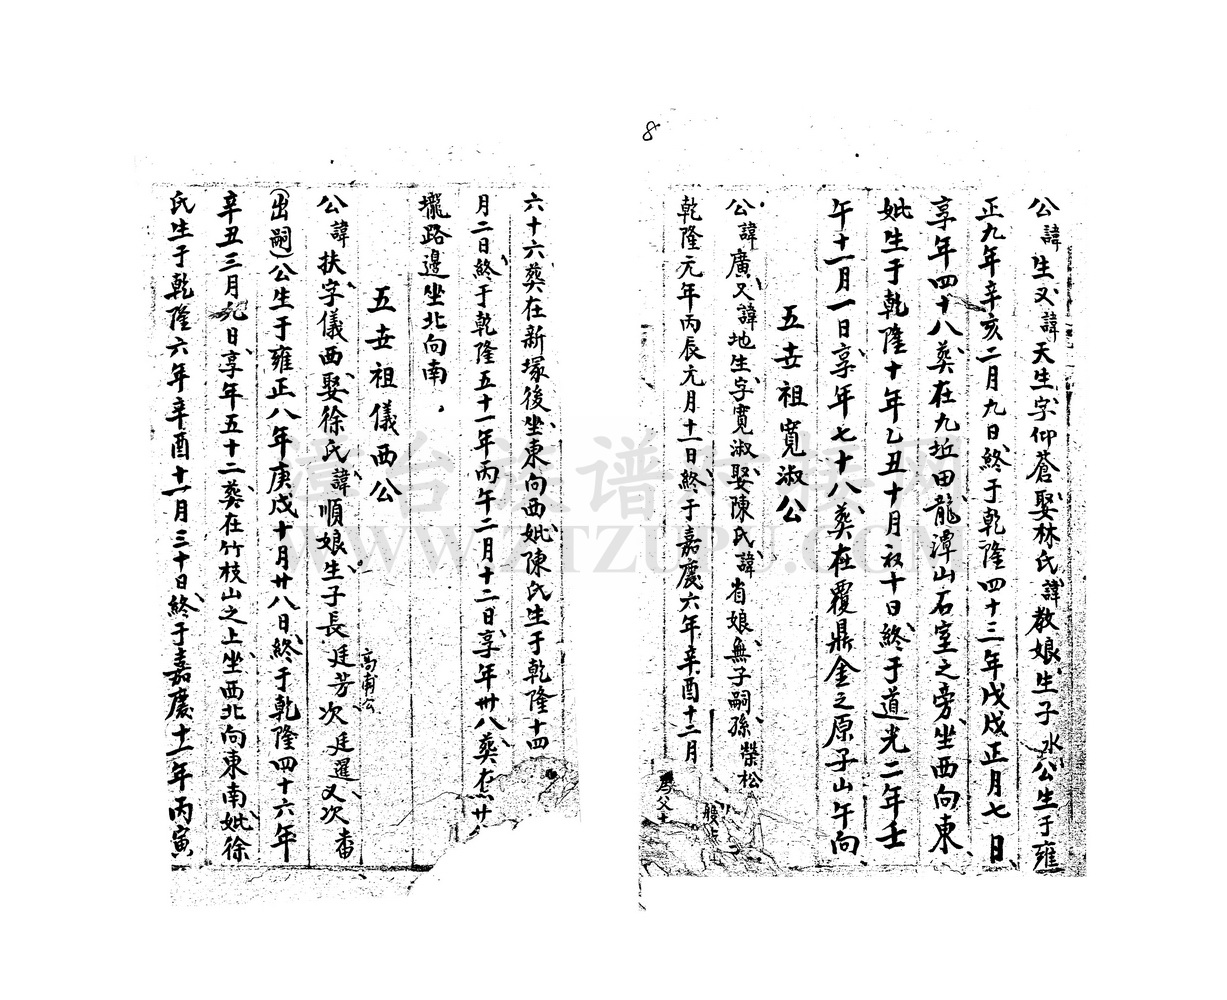 8
公諱生又諱天生字仰蒼娶林氏諱教娘生子水公生于雍
正九年辛亥二月九日終于乾隆四十三年戊戌正月七日
享年四十八葬在九坵田龍潭山石室之旁坐西向東
妣生于乾隆十年乙丑十月初十日終于道光二年壬
午十一月一日享年七十八葬在覆鼎金之原子山午向
五世祖寬淑公
公諱廣又諱地生字寬淑娶陳氏諱省娘無子嗣孫榮松
乾隆元年丙辰元月十一日終于嘉慶六年辛酉十二月
六十六葬在新塚後坐東向西妣陳氏生于乾隆十四
月二日終于乾隆五十一年丙午二月十二日享年卅八葬在
壠路邊坐北向南
五世祖儀西公
公諱扶字儀西娶徐氏諱順娘生子長廷芳次廷暹又次番
高甫公
(出嗣)公生于雍正八年庚戌十月廿八日終于乾隆四十六年
辛丑三月九日享年五十二葬在竹枝山之上坐西北向東南妣徐
氏生于乾隆六年辛酉十一月三十日終于嘉慶十一年丙寅
漳台族谱对接网
WWW.ZTZUPU.COM